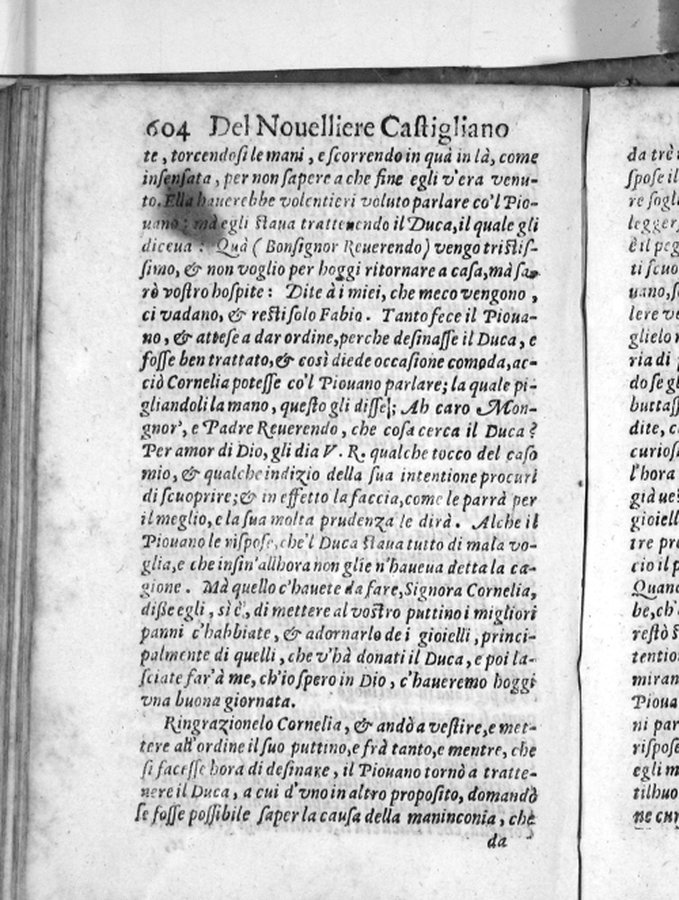 604 Del Nouelliere Castigliano
te, torcendosi le mani, e scorrendo in quà in là, come
insensata, per non sapere a che fine egli v'era venu-
to. Ella hauerebbe volentieri voluto parlare co'l Pio-
uano; mà egli staua trattenendo il Duca, il quale gli
diceua: Quà (Bonsignor Reuerendo) vengo tristis-
simo, & non voglio per hoggi ritornare a casa, mà sa-
rò vostro hospite: Dite à i miei, che meco vengono,
ci vadano, & resti solo Fabio. Tanto fece il Pioua-
no, & attese a dar ordine, perche desinasse il Duca, e
fosse ben trattato, & così diede occasione comoda, ac-
ciò Cornelia potesse co'l Piouano parlare; la quale pi-
gliandoli la mano, questo gli disse; Ah caro Mon-
gnor', e Padre Reuerendo, che cosa cerca il Duca?
Per amor di Dio, gli dia V. R. qualche tocco del caso
mio, & qualche indizio della sua intentione procuri
di scuoprire; & in effetto la faccia, come le parrà per
il meglio, e la sua molta prudenza le dirà. Alche il
Piouano le rispose, che'l Duca staua tutto di mala vo-
glia, e che insin'allhora non glie n'haueua detta la ca-
gione. Mà quello c'hauete da fare, Signora Cornelia,
disse egli, si è, di mettere al vostro puttino i migliori
panni c'habbiate, & adornarlo de i gioielli, princi-
palmente di quelli, che v'hà donati il Duca, e poi la-
sciate far'à me, ch'io spero in Dio, c'haueremo hoggi
vna buona giornata.
Ringrazionelo Cornelia, & andò a vestire, e met-
tere all'ordine il suo puttino, e frà tanto, e mentre, che
si facesse hora di desinare, il Piouano tornò a tratte-
nere il Duca, a cui d'vno in altro proposito, domandò
se fosse possibile saper la causa della maninconia, che
da
da trè
spose il
re sogl
legger
è il peg
ti scuo
uano, s
lere ve
glielo
ria di
do se gl
buttass
dite, c
curios
l'hora
già ue
gioiell
tre pr
cio il p
Quand
be, ch'
restò
tention
miran
Pioua
ni par
rispose
egli m
tilhuo
ne cur